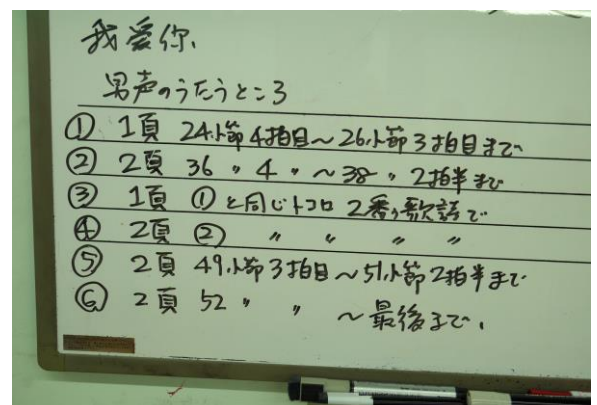 我爱你、
男声のうたうところ
① 1頁 24小節4拍目～26小節3拍目まで
② 2頁 36 〃 4 〃 ～38 〃 2拍半まで
③ 1頁 ①と同じトコロ 2番の歌詩で
④ 2頁 ② 〃 〃 〃 〃
⑤ 2頁 49小節3拍目～51小節2拍半まで
⑥ 2頁 52 〃 〃 ～最後まで.